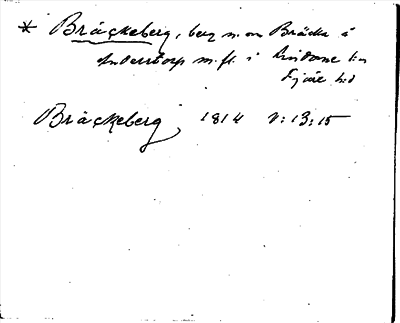 * Bräckeberg, berg n. om Bräcka å
Anderstorp m. fl. i Lindome sn
Fjäre hd
Bräckeberg 1814 V: 13: 15